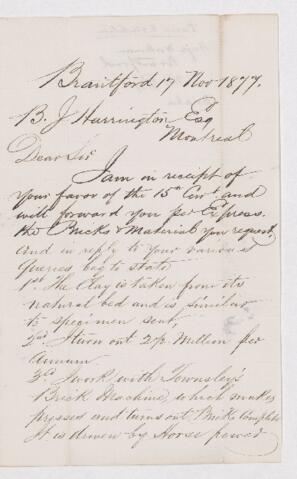 Brantford 17 Nov 1877.
B. J Harrington Esq
Montreal
Dear Sir
I am in receipt of
your favor of the 15th Curt and
will forward you per Express.
the Bricks & Material you request,
and in reply to your various
queries beg to state
1st The Clay is taken from its
natural bed and is similar
to specimen sent,
2nd I turn out 2½ Million per
Annum
3rd I work with Townsley's
Brick Machine, which makes
presses and turns out Bricks complete
It is driven by Horse power